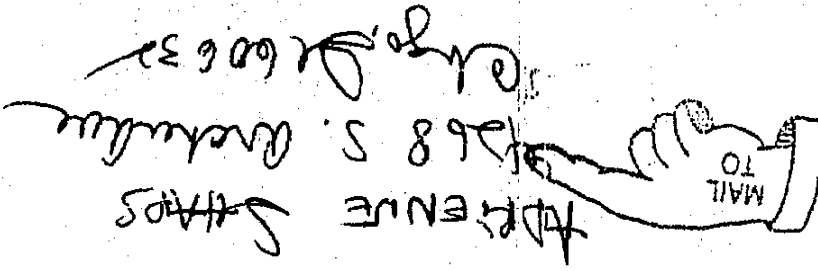 MAIL
TO
ADRIENNE
4268 S. Archer Ave
Chgo, Il 60632